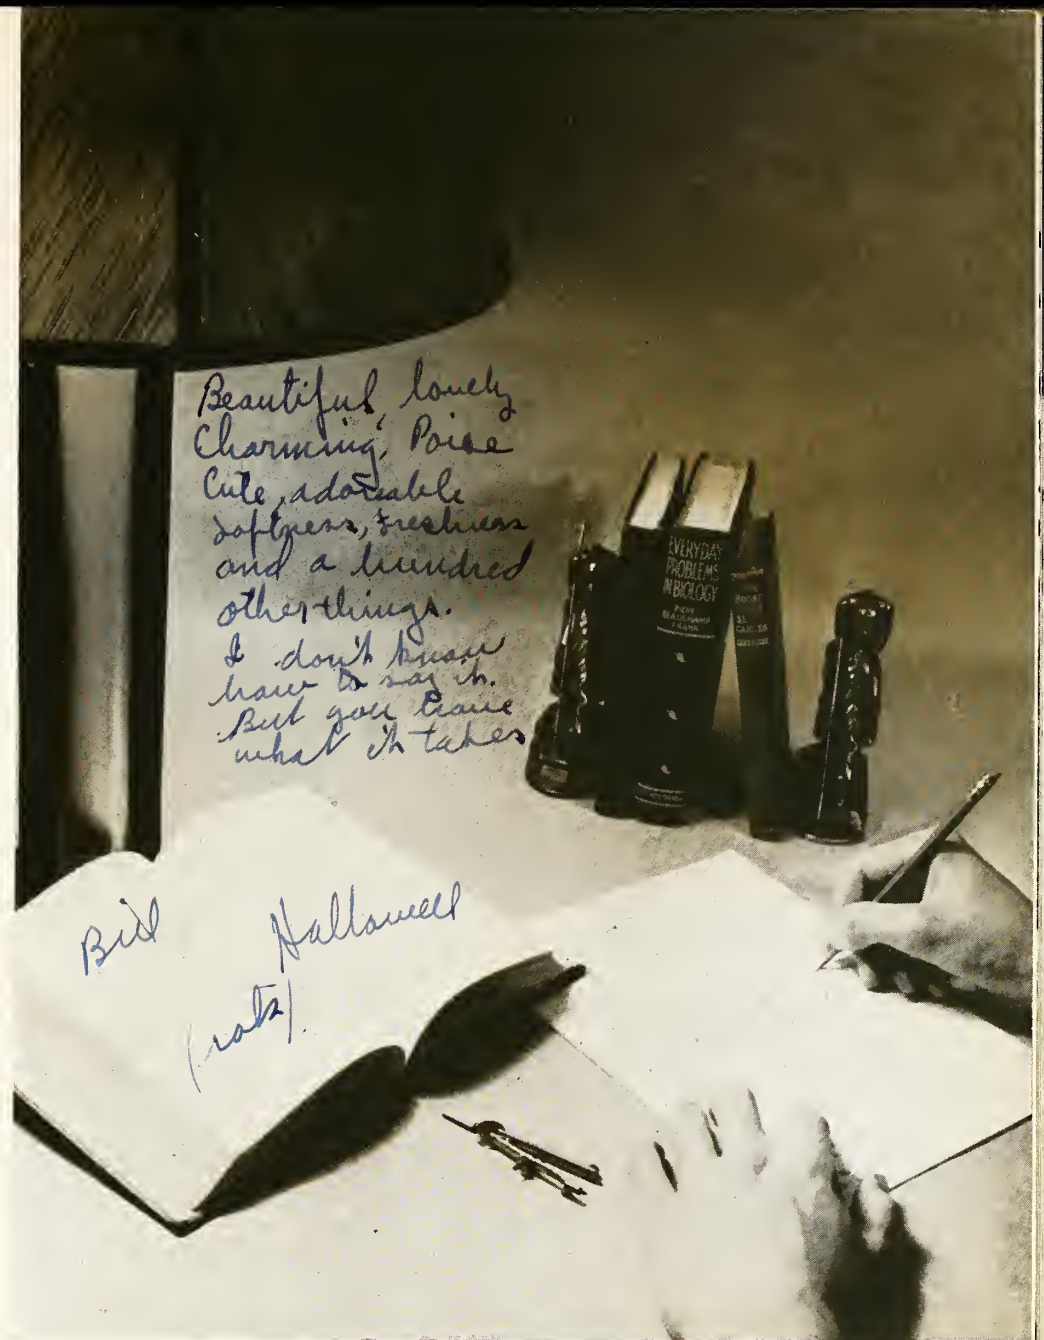 Beautiful, lovely
Charming, Poise
Cute, adorable
Softness, Freshness
and a hundred
other things.
I don't know
how to say it.
But you have
what it takes
EVERYDAY
PROBLEMS
IN BIOLOGY
BEAUCHAMP
Bill Hallowell
(rats).